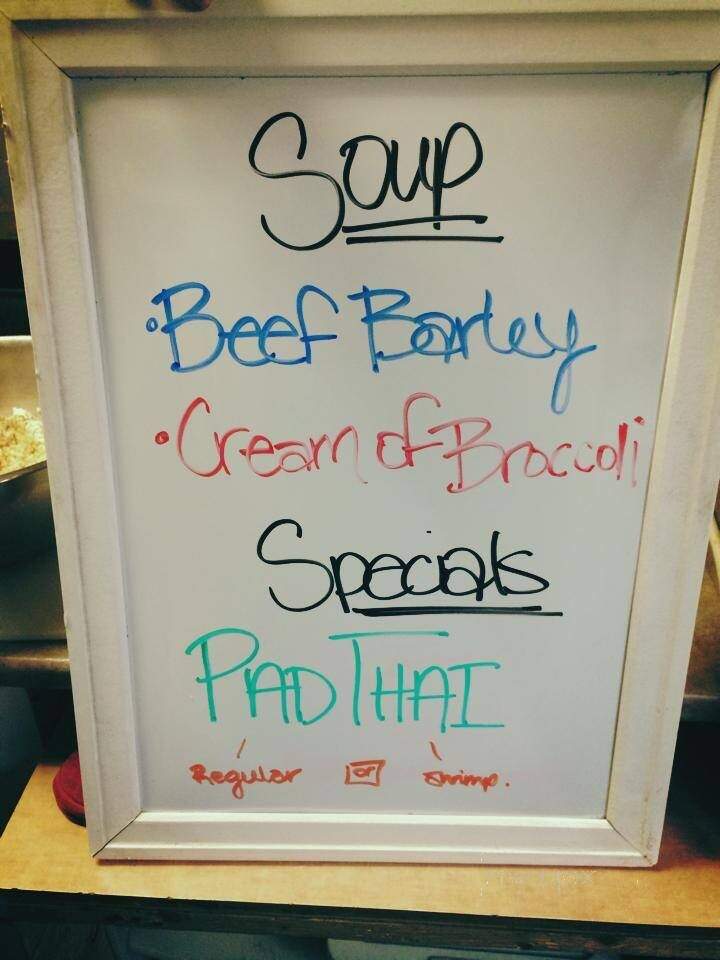 Soup
• Beef Barley
• Cream of Broccoli
Specials
PAD THAI
Regular or Shrimp.